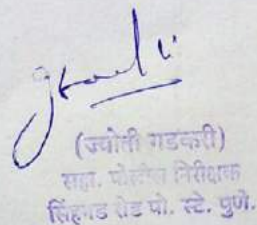 (ज्योती गडकरी)
सहा. पोलीस निरीक्षक
सिंहगड रोड पो. स्टे. पुणे.